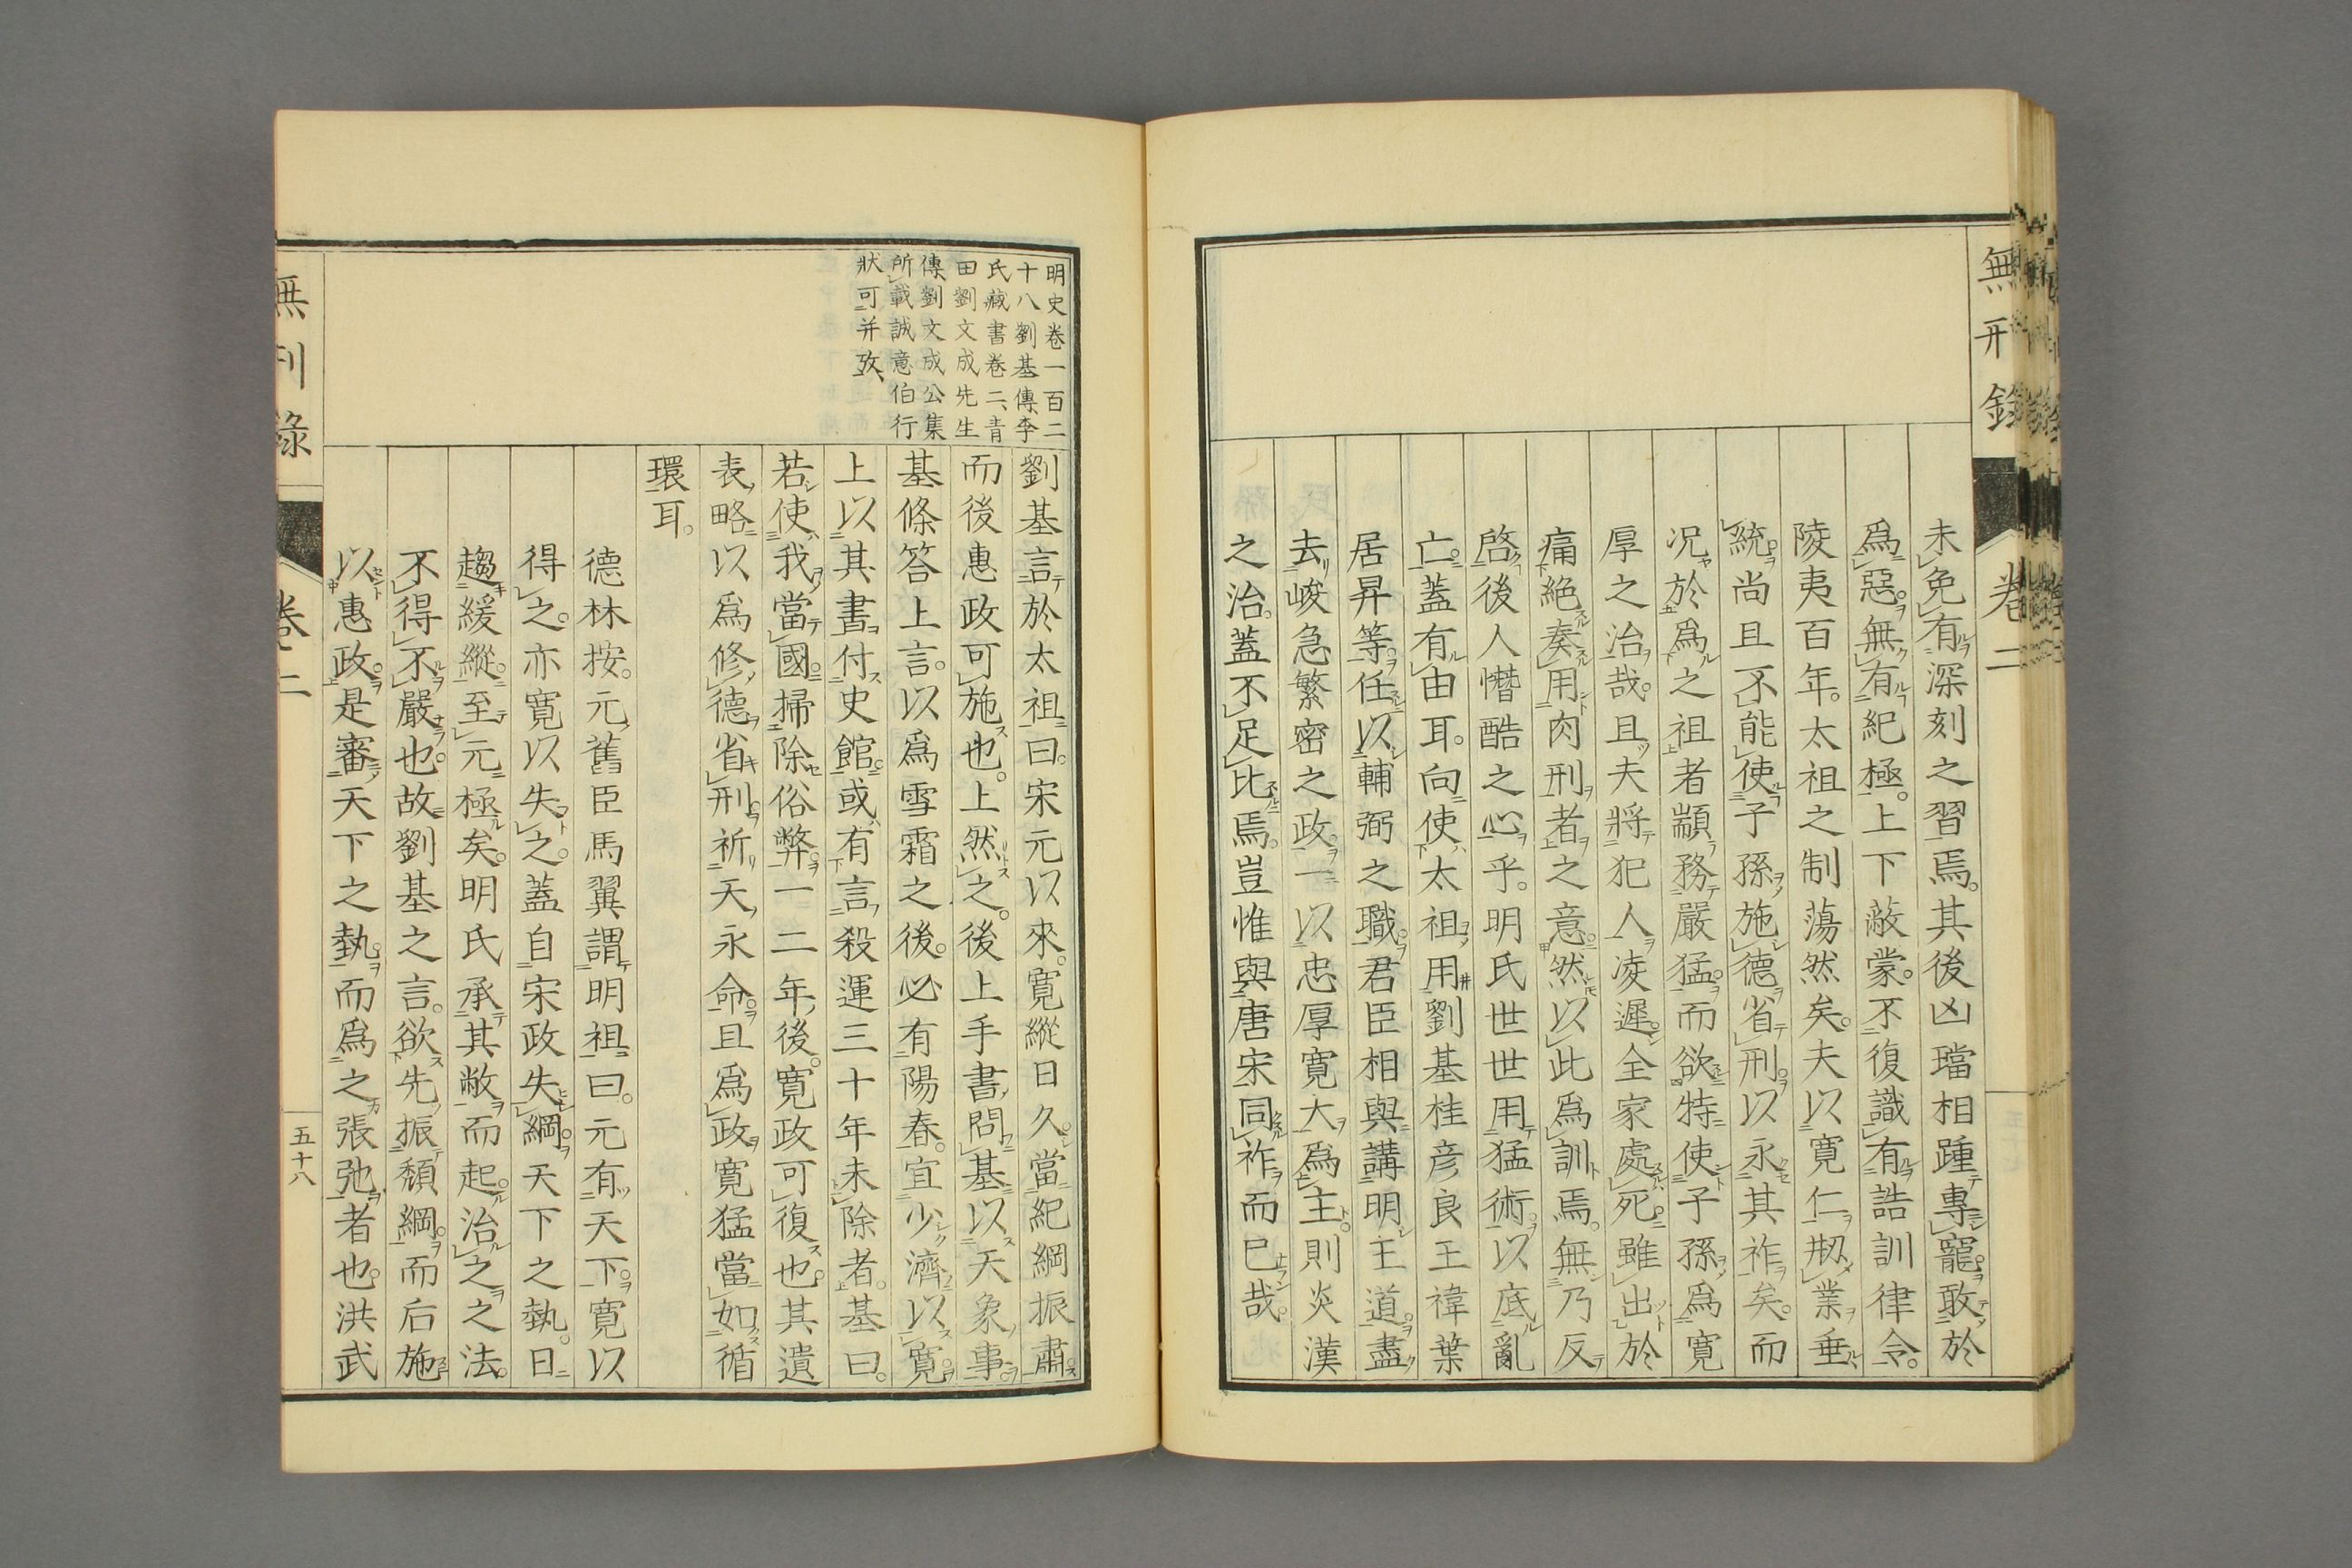 無刑錄
卷二
未免有深刻之習焉。其後凶璫相踵專寵敢於
爲惡。無有紀極。上下敝蒙。不復識有誥訓律令。
陵夷百年。太祖之制蕩然矣。夫以寬仁剏業垂
統。尚且不能使子孫施德省刑。以永其祚矣。而
況於爲之祖者顓務嚴猛。而欲特使子孫爲寬
厚之治哉。且夫將犯人凌遲。全家處死。雖出於
痛絕奏用肉刑者之意。然以此爲訓焉。無乃反
啓後人憯酷之心乎。明氏世世用猛術。以底亂
亡。蓋有由耳。向使太祖用劉基桂彥良王禕葉
居昇等。任以輔弼之職。君臣相與講明王道。盡
去峻急繁密之政。一以忠厚寬大爲主。則炎漢
之治。蓋不足比焉。豈惟與唐宋同祚而已哉。
明史卷一百二
十八劉基傳、李
氏藏書卷二、青
田劉文成先生
傳、劉文成公集
所載誠意伯行
狀可并攷、
劉基言於太祖曰。宋元以來。寬縱日久。當紀綱振肅。
而後惠政可施也。上然之。後上手書問基以天象事。
基條答上言。以爲雪霜之後。必有陽春。宜少濟以寬。
上以其書付史館。或有言殺運三十年未除者。基曰。
若使我當國。掃除俗弊。一二年後。寬政可復也。其遺
表略以爲修德省刑。祈天永命。且爲政寬猛當如循
環耳。
德林按。元舊臣馬翼謂明祖曰。元有天下。寬以
得之。亦寬以失之。蓋自宋政失綱。天下之執。日
趨緩縱。至元極矣。明氏承其敝而起。治之之法。
不得不嚴也。故劉基之言。欲先振頽綱。而后施
以惠政。是審天下之執。而爲之張弛者也。洪武
無刑錄
卷二
五十八